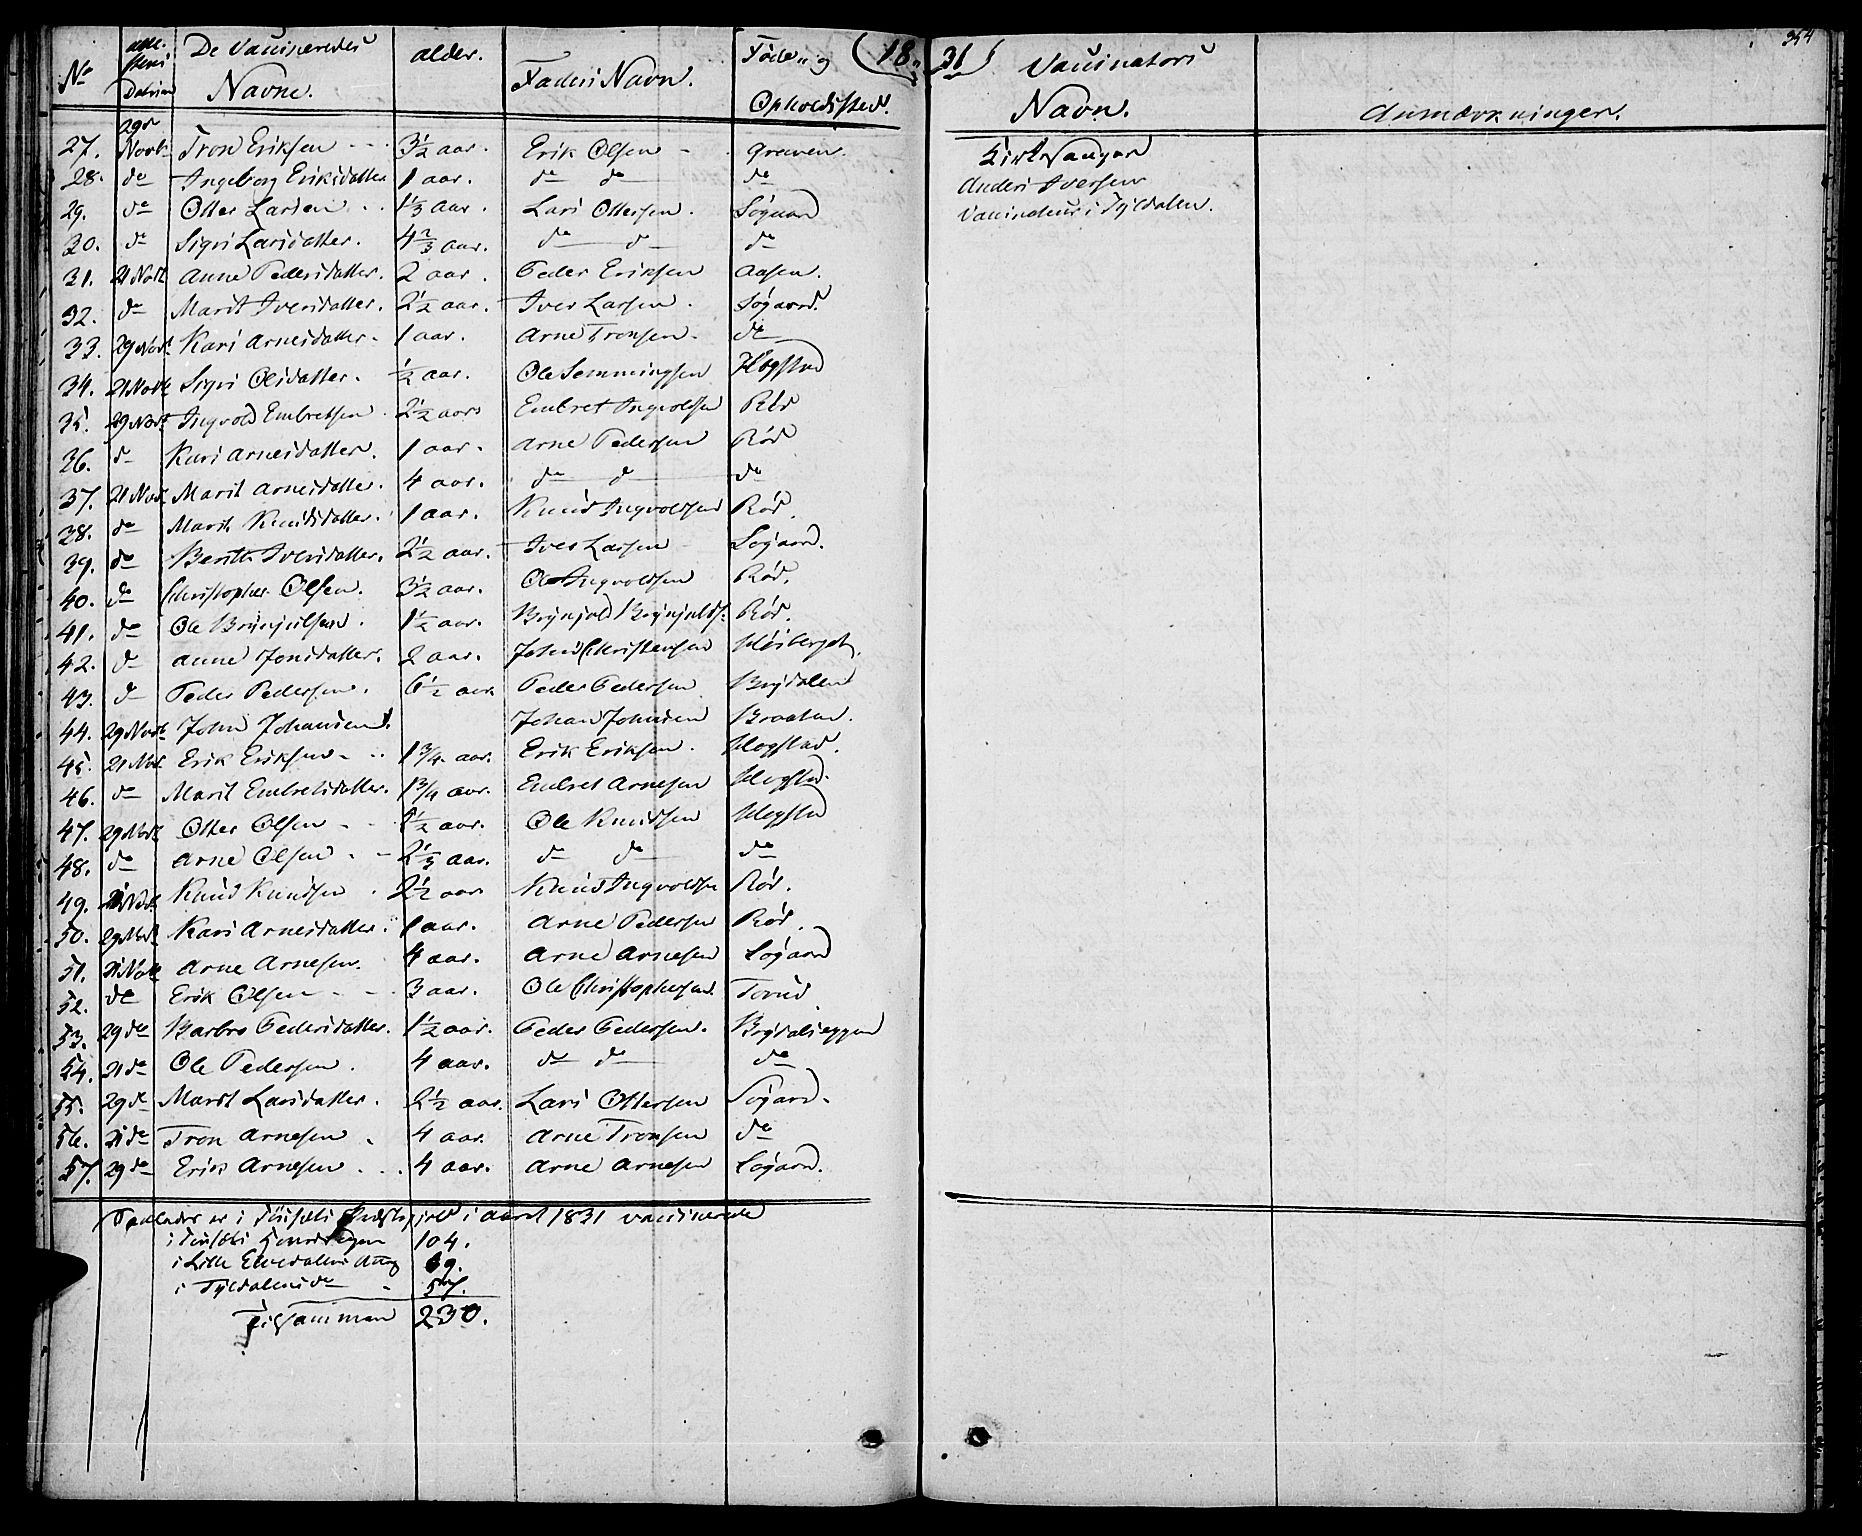 354
(18 31)
No
Attestens Datum
De Vaccineredes Navne.
alder.
Faders Navn.
Føde- og Opholdssted.
Vaccinators Navn.
Anmærkninger.
27. 29de Novbr Tron Eriksen 3½ aar. Erik Olsen Græven.
28. do Ingeborg Eriksdatter 1 aar. do do do
29. do Otter Larsen 1⅓ aar. Lars Ottersen. Søgaard
30. do Sigri Larsdatter. 4⅔ aar. do do do
31. 21 Novb Anne Pedersdatter. 2 aar. Peder Eriksen Aasen.
32. do Marit Iversdatter. 2½ aar. Iver Larsen. Søgaard.
33. 29 Novb Kari Arnesdatter. 1 aar. Arne Tronsen. do
34. 21 Novb Sigri Olsdatter. ½ aar. Ole Semmingsen Hogstad
35. 29 Novb Ingvold Embretsen. 2½ aar Embret Ingvoldsen Rød
36. do Kari Arnesdatter. 1 aar. Arne Pedersen Rød
37. 21 Novb Marit Arnesdatter. 4 aar. do do do
38. do Marit Knudsdatter. 1 aar. Knud Ingvoldsen Rød.
39. do Berith Iversdatter. 2½ aar. Iver Larsen Søgaard.
40. do Christopher Olsen. 3½ aar. Ole Ingvoldsen Rød.
41. do Ole Brynjulsen. 1½ aar. Brynjold Brynjulds. Rød.
42. do Anne Jonsdatter. 2 aar. John Christensen Høiberget.
43. do Peder Pedersen. 6½ aar Peder Pedersen Brydalen
44. 29 Novb John Johansen. Johan Johnsen Braaten.
45. 21 Nov. Erik Eriksen 1¾ aar. Erik Eriksen. Hogstad.
46. do Marit Embretsdatter. 1¾ aar. Embret Arnesen Hogstad.
47. 29 Novb Otter Olsen ½ aar. Ole Knudsen Hogstad
48. do Arne Olsen 2⅓ aar. do do do
49. 21 Novb Knud Knudsen 2½ aar Knud Ingvoldsen Rød.
50. 29 Novb Kari Arnesdatter. 1 aar. Arne Pedersen Rød.
51. 21 Novb Arne Arnesen. 4 aar. Arne Arnesen Søgaard
52. do Erik Olsen 3 aar. Ole Christophersen.
53. 29 do Barbro Pedersdatter. 1½ aar. Peder Pedersen. Brydalseggen
54. 21 do Ole Pedersen. 4 aar. do do do
55. 29 do Marit Larsdatter. 2½ aar. Lars Ottersen Søgard.
56. 21 do Tron Arnesen 4 aar. Arne Tronsen do
57. 29 do Erik Arnesen 4 aar. Arne Arnesen Søgaard.
Kirkesanger
Anders Iversen
Vaccinateur i Tyldalen.
er i Tønsets Præstegjeld i Aaret 1831 vaccinerede
i Tønsets Hovedsogn 104.
i Lille Elvedalens Annex 69.
i Tyldalens do 57.
Tilsammen 230.